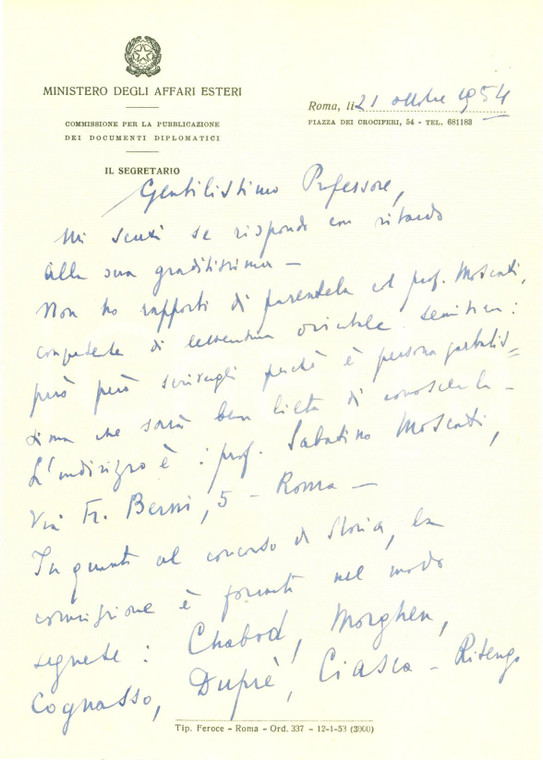 MINISTERO DEGLI AFFARI ESTERI
COMMISSIONE PER LA PUBBLICAZIONE
DEI DOCUMENTI DIPLOMATICI
IL SEGRETARIO
Roma, lì 21 ottobre 1954
PIAZZA DEI CROCIFERI, 54 - TEL. 681183
Gentilissimo Professore,
Mi scusi se rispondo con ritardo
alla sua graditissima —
Non ho rapporti di parentela col prof. Moscati,
competente di letteratura orientale semitica:
però può scrivergli perché è persona garbatis=
sima che sarà ben lieta di conoscerla —
L'indirizzo è: prof. Sabatino Moscati,
Via Fr. Berni, 5 - Roma —
In quanto al concorso di Storia, la
commissione è formata nel modo
seguente: Chabod, Morghen,
Cognasso, Dupré, Ciasca - Ritengo
Tip. Feroce - Roma - Ord. 337 - 12-1-53 (3000)